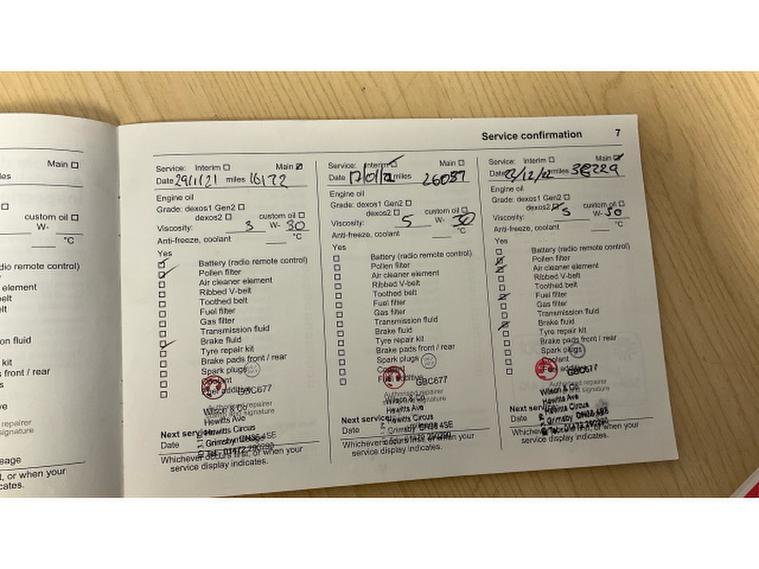 Service confirmation 7
Main
les
custom oil
W-
°C
dio remote control)
element
belt
elt
on fluid
kit
s front / rear
ve
repairer
signature
eage
t, or when your
cates.
Service: Interim Main
Date 29/1/21 miles 16172
Engine oil
Grade: dexos1 Gen2
dexos2 custom oil
Viscosity: 3 W- 30
Anti-freeze, coolant °C
Yes
Battery (radio remote control)
Pollen filter
Air cleaner element
Ribbed V-belt
Toothed belt
Fuel filter
Gas filter
Transmission fluid
Brake fluid
Tyre repair kit
Brake pads front / rear
Spark plugs
Coolant
Fuel additive
GBC677
Authorised repairer
stamp and signature
Wilson & Co
Hewitts Ave
Hewitts Circus
Grimsby DN36 4SE
Tel: 01472 290290
Next service:
Date
Whichever occurs first, or when your
service display indicates.
Service: Interim Main
Date 17/01/2 miles 26087
Engine oil
Grade: dexos1 Gen2
dexos2 custom oil
Viscosity: 5 W- 30
Anti-freeze, coolant °C
Yes
Battery (radio remote control)
Pollen filter
Air cleaner element
Ribbed V-belt
Toothed belt
Fuel filter
Gas filter
Transmission fluid
Brake fluid
Tyre repair kit
Brake pads front / rear
Spark plugs
Coolant
Fuel additive
GBC677
Authorised repairer
Wilson & Co
Hewitts Ave
Hewitts Circus
Grimsby DN36 4SE
01472 290290
Next service:
Date
Whichever occurs first, or when your
service display indicates.
Service: Interim Main
Date /12/22 miles 38229
Engine oil
Grade: dexos1 Gen2
dexos2 custom oil
Viscosity: 5 W- 30
Anti-freeze, coolant °C
Yes
Battery (radio remote control)
Pollen filter
Air cleaner element
Ribbed V-belt
Toothed belt
Fuel filter
Gas filter
Transmission fluid
Brake fluid
Tyre repair kit
Brake pads front / rear
Spark plugs
Coolant
GBC677
Authorised repairer
Wilson & Co
Hewitts Ave
Hewitts Circus
Grimsby DN36 4SE
01472 290290
Next service:
Date
Whichever occurs first, or when your
service display indicates.